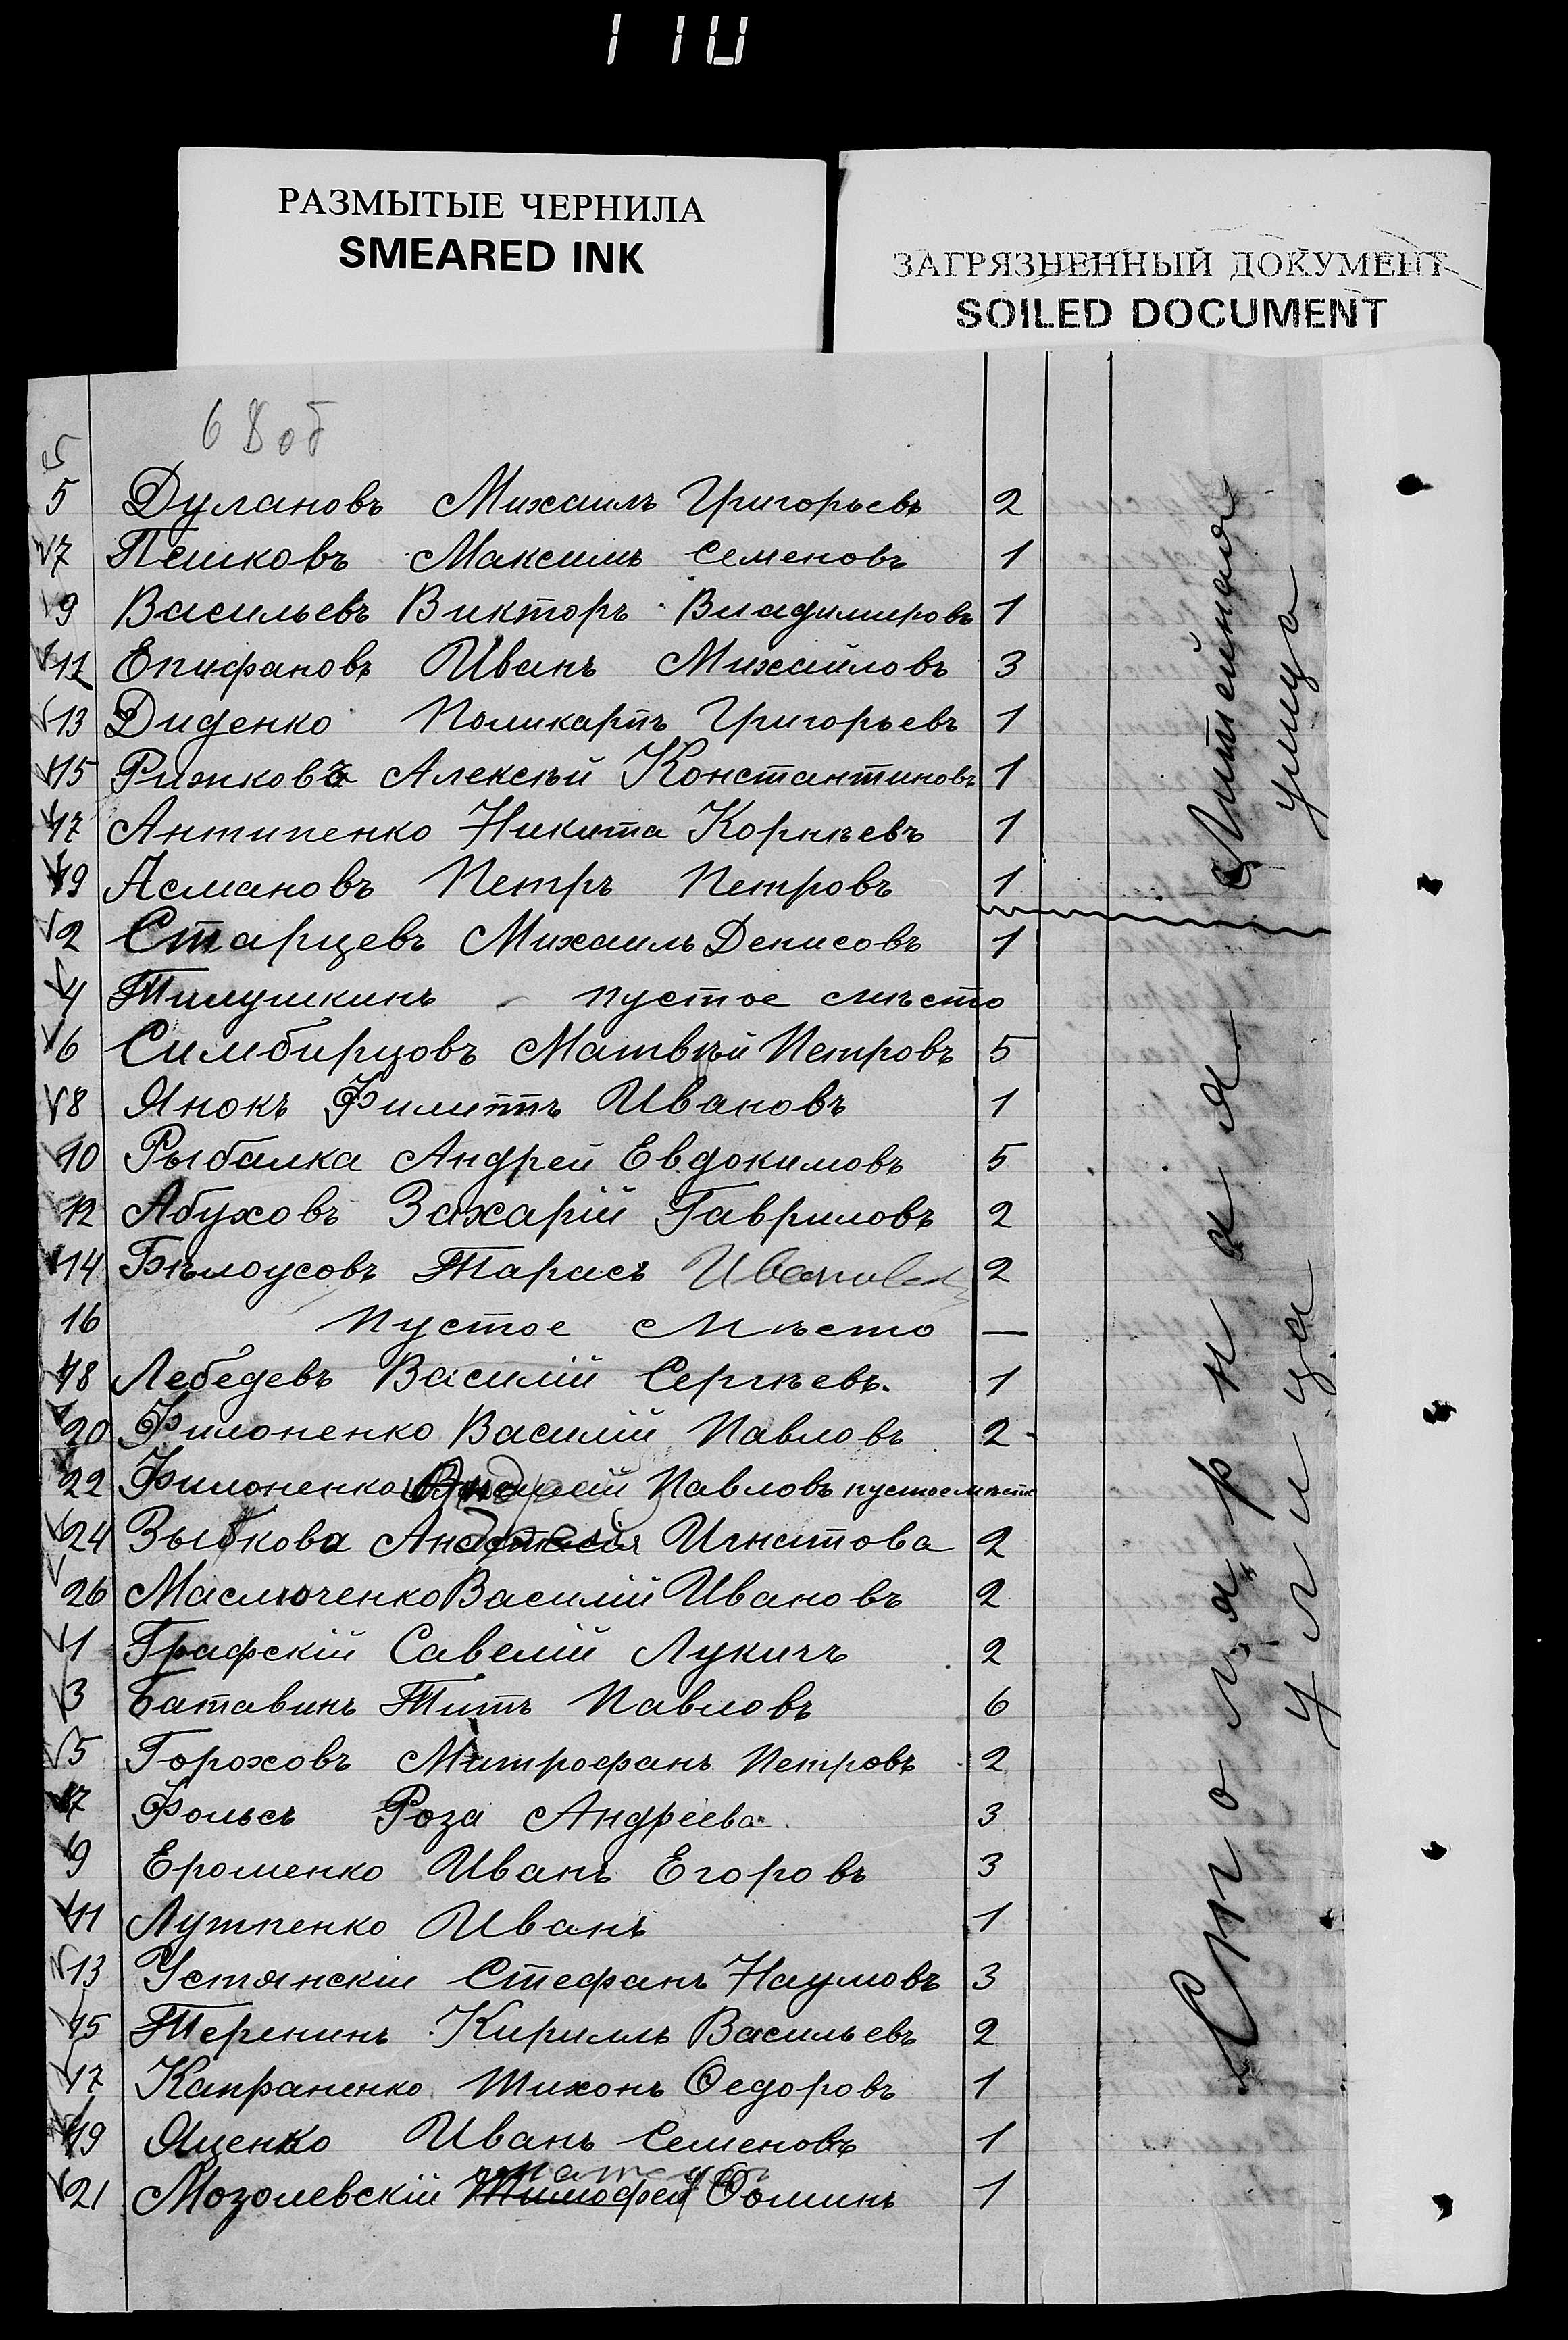 110
РАЗМЫТЫЕ ЧЕРНИЛА
SMEARED INK
ЗАГРЯЗНЕННЫЙ ДОКУМЕНТ
SOILED DOCUMENT
68об
5
5 Дулановъ Михаилъ Григорьевъ 2
7 Пешковъ Максимъ Семеновъ 1
9 Васильевъ Викторъ Владимировъ 1
11 Епифановъ Иванъ Михайловъ 3
13 Диденко Поликарпъ Григорьевъ 1
15 Рижковъ Алексѣй Константиновъ 1
17 Антипенко Никита Корнѣевъ 1
19 Асмановъ Петръ Петровъ 1
Литейная
улица
2 Старцевъ Михаилъ Денисовъ 1
4 Тимушкинъ - пустое мѣсто
6 Симбирцовъ Матвѣй Петровъ 5
8 Янокъ Филиппъ Ивановъ 1
10 Рыбалка Андрей Евдокимовъ 5
12 Абуховъ Захарій Гавриловъ 2
14 Бѣлоусовъ Тарасъ 2
16 пустое мѣсто —
18 Лебедевъ Василій Сергѣевъ. 1
20 Филоненко Василій Павловъ 2
22 Филоненко Андрей Павловъ пустое мѣсто
24 Зыбкова Анастасія Игнатова 2
26 Маслюченко Василій Ивановъ 2
1 Графскій Савелій Лукичъ 2
3 Батавинъ Титъ Павловъ 6
5 Гороховъ Митрофанъ Петровъ 2
7 Фольсъ Роза Андреева 3
9 Ероменко Иванъ Егоровъ 3
11 Лутпенко Иванъ 1
13 Устянскій Стефанъ Наумовъ 3
15 Теренинъ Кириллъ Васильевъ 2
17 Капраненко Тихонъ Ѳедоровъ 1
19 Яценко Иванъ Семеновъ 1
21 Мозолевскій Тимофей Ѳоминъ 1
Столярная
улица